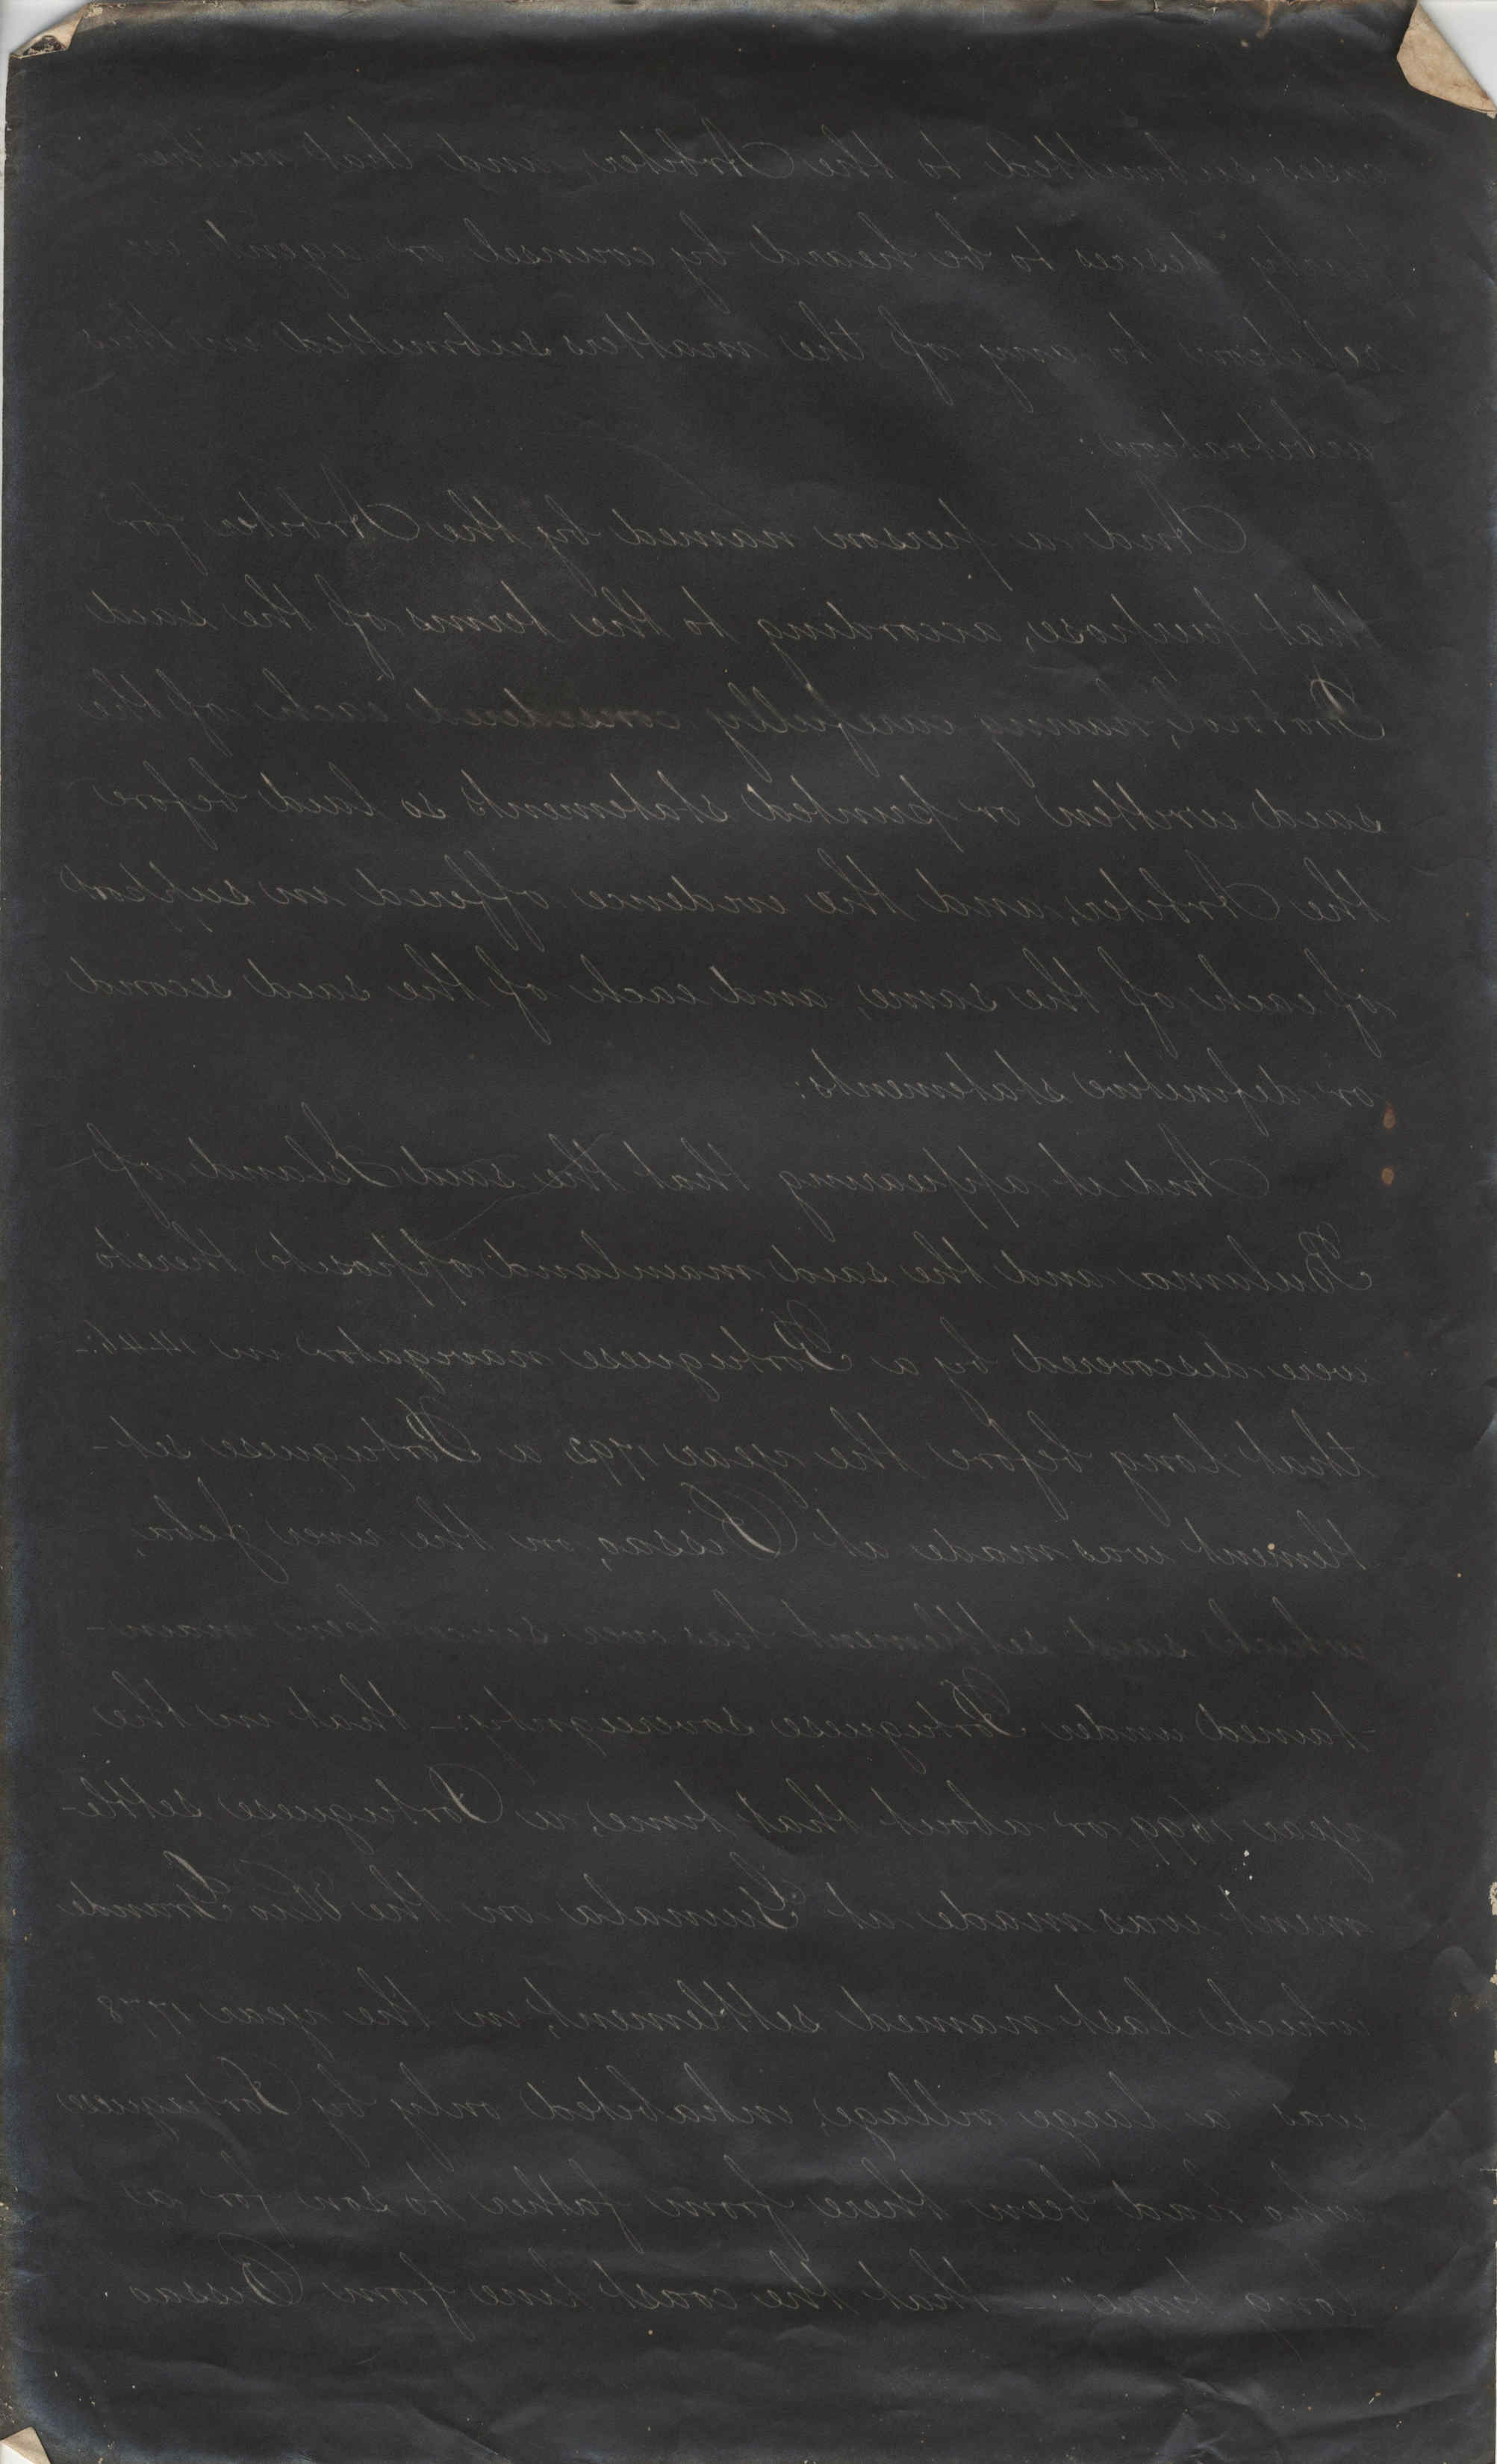 cases submitted to the Arbiter, and that neither
party desires to be heard by counsel or agent in
relation to any of the matters submitted in this
arbitration:
And a person named by the Arbiter for
that purpose, according to the terms of the said
Protocol, having carefully considered each of the
said written or printed statements so laid before
the Arbiter, and the evidence offered in support
of each of the same, and each of the said second
or definitive statements:
And it appearing that the said Island of
Bulama and the said mainland opposite thereto
were discovered by a Portuguese navigator in 1446:-
that long before the year 1792 a Portuguese set-
tlement was made at Bissao, on the river Jeba,
which said settlement has ever since been main-
tained under Portuguese sovereignty:- that in the
year 1699, or about that time, a Portuguese settle-
ment was made at Guinala on the Rio Grande
which last named settlement, in the year 1778
was "a large village, inhabited only by Portuguese
who had been there from father to son for a
long time": - that the coast line from Bissao